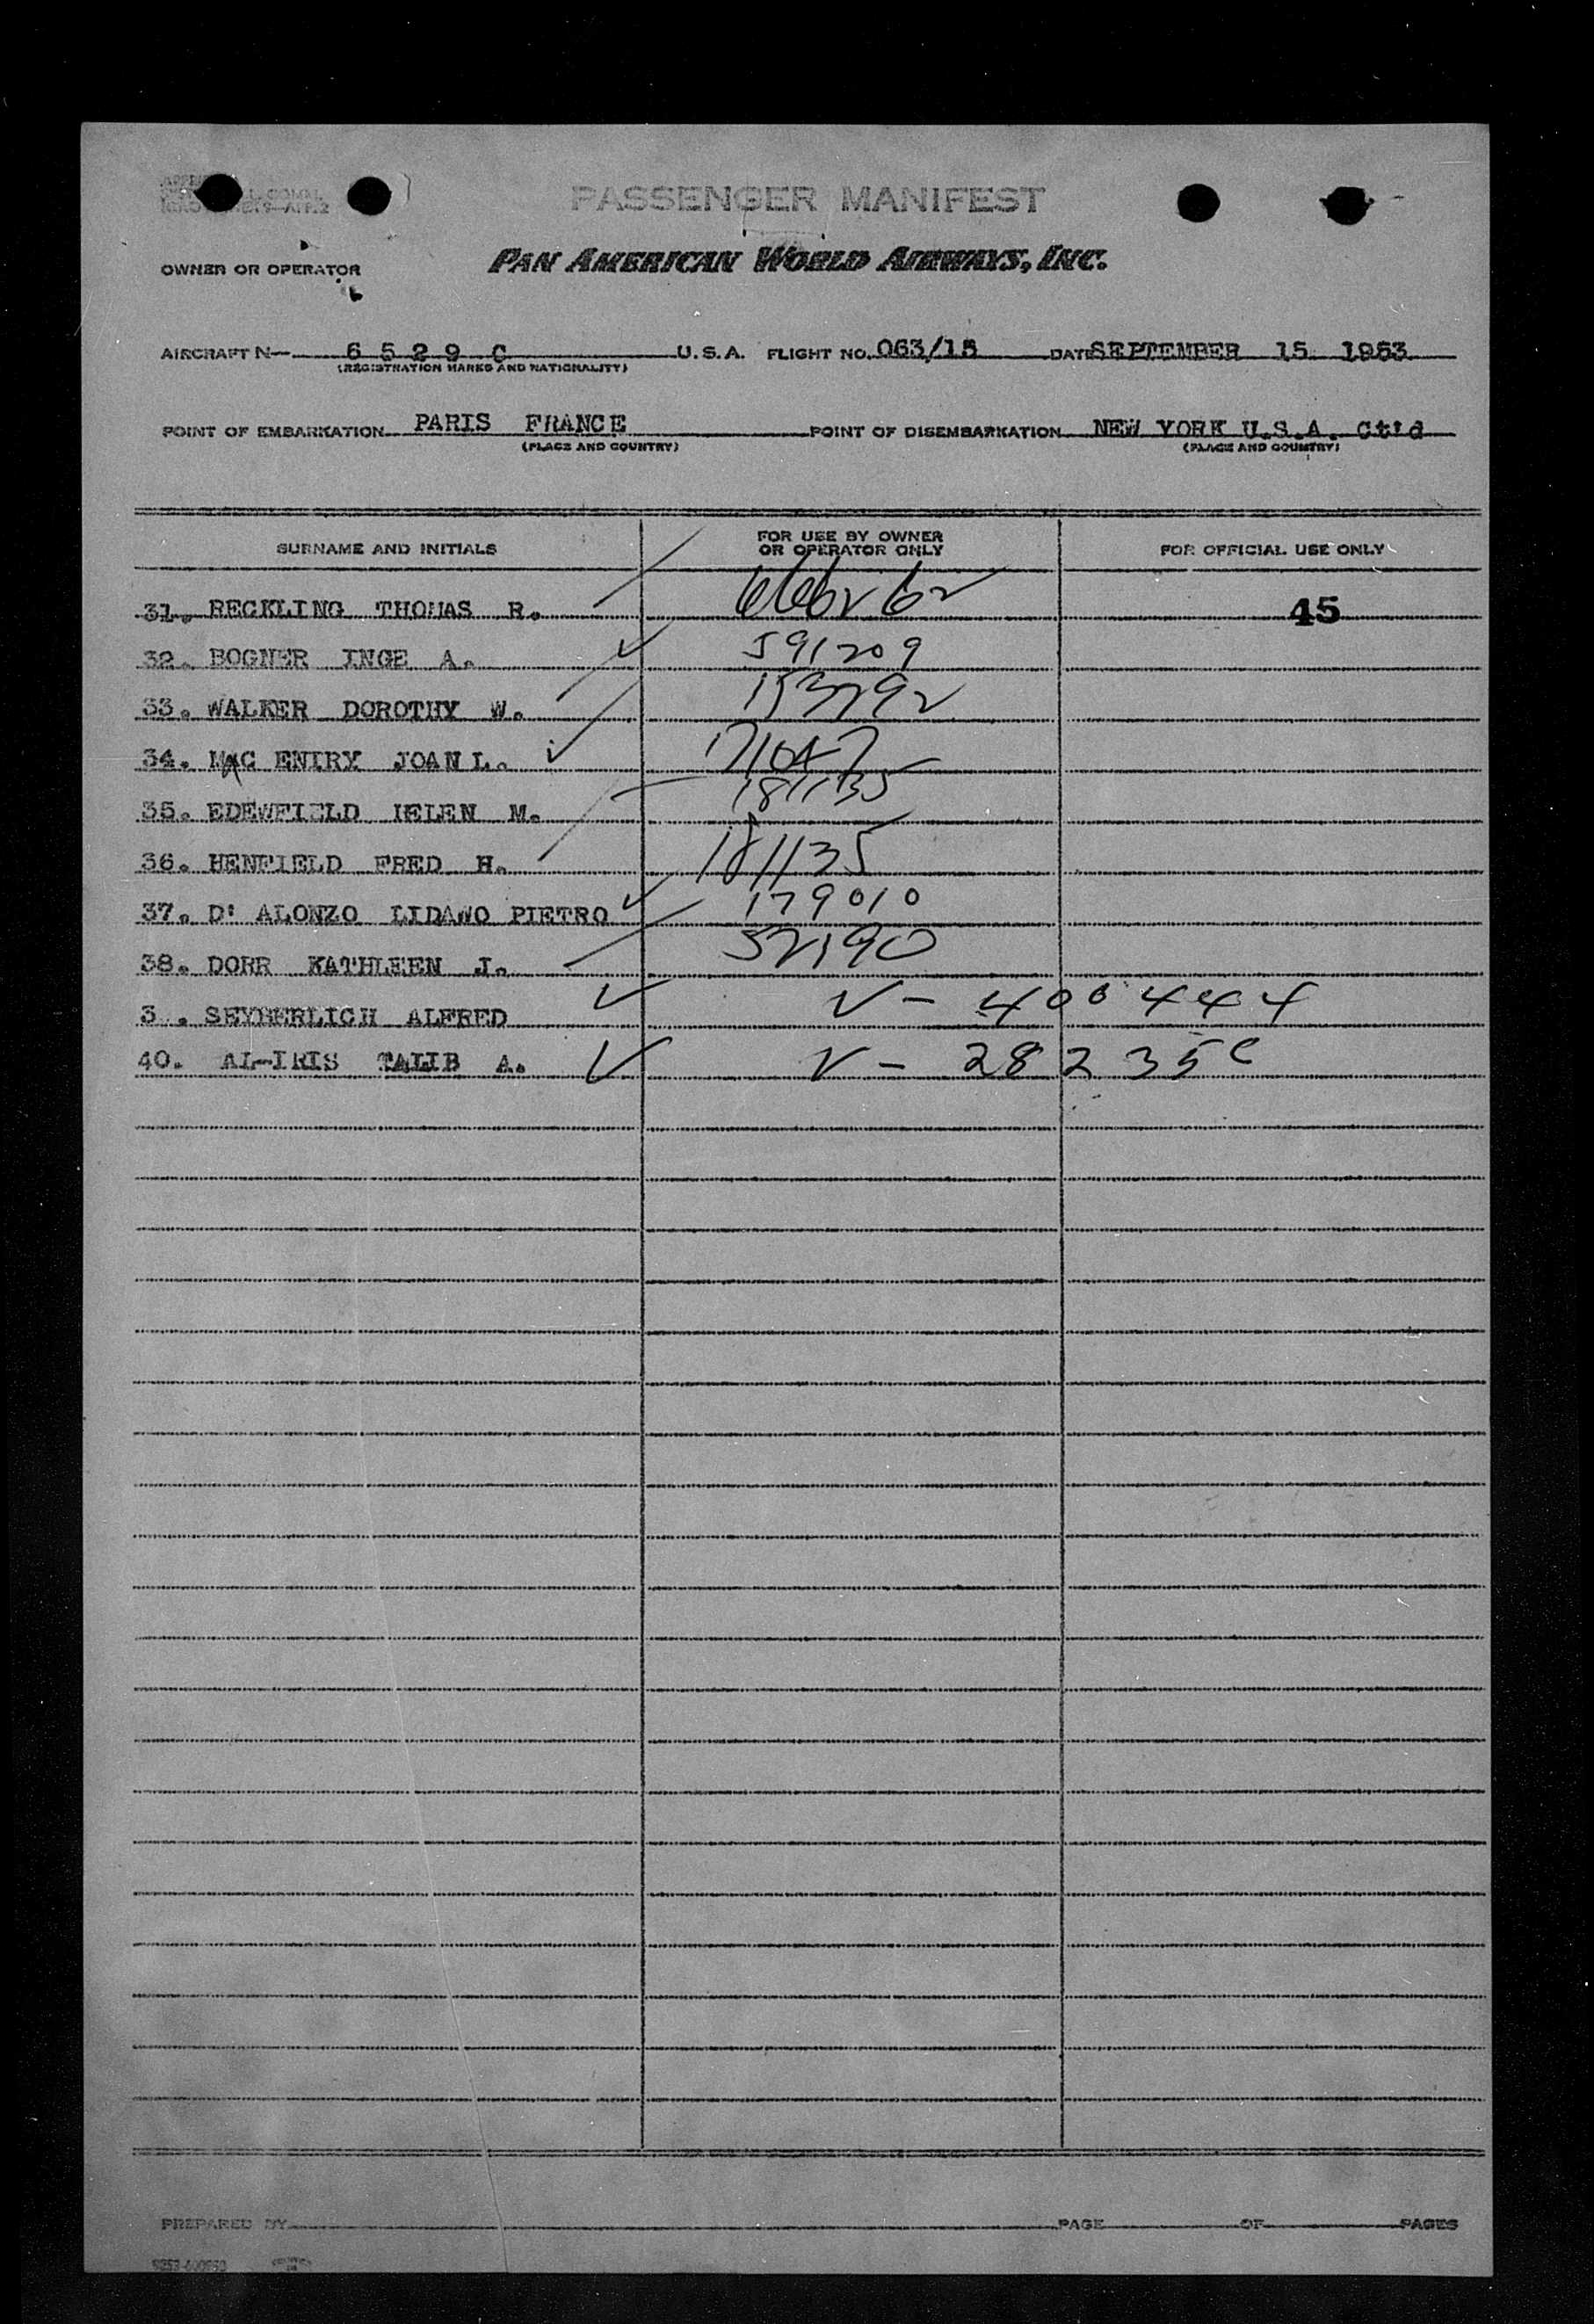 PASSENGER MANIFEST
OWNER OR OPERATOR PAN AMERICAN WORLD AIRWAYS, INC.
AIRCRAFT N- 6 5 2 9 C U.S.A. FLIGHT NO. 063/15 DATE SEPTEMBER 15 1953
(REGISTRATION MARKS AND NATIONALITY)
POINT OF EMBARKATION PARIS FRANCE POINT OF DISEMBARKATION NEW YORK U.S.A. Cttd
(PLACE AND COUNTRY) (PLACE AND COUNTRY)
SURNAME AND INITIALS FOR USE BY OWNER OR OPERATOR ONLY FOR OFFICIAL USE ONLY
31. RECKLING THOMAS R. 45
32. BOGNER INGE A. 591209
33. WALKER DOROTHY W. 153792
34. MAC ENIRY JOAN L. 171047
35. EDEWFIELD HELEN M. 181135
36. HENFIELD FRED H. 181135
37. D' ALONZO LIDANO PIETRO 179010
38. DORR KATHLEEN J. 52190
3 . SEYBERLICH ALFRED V - 400444
40. AL-IRIS TALIB A. V -
PREPARED BY PAGE OF PAGES